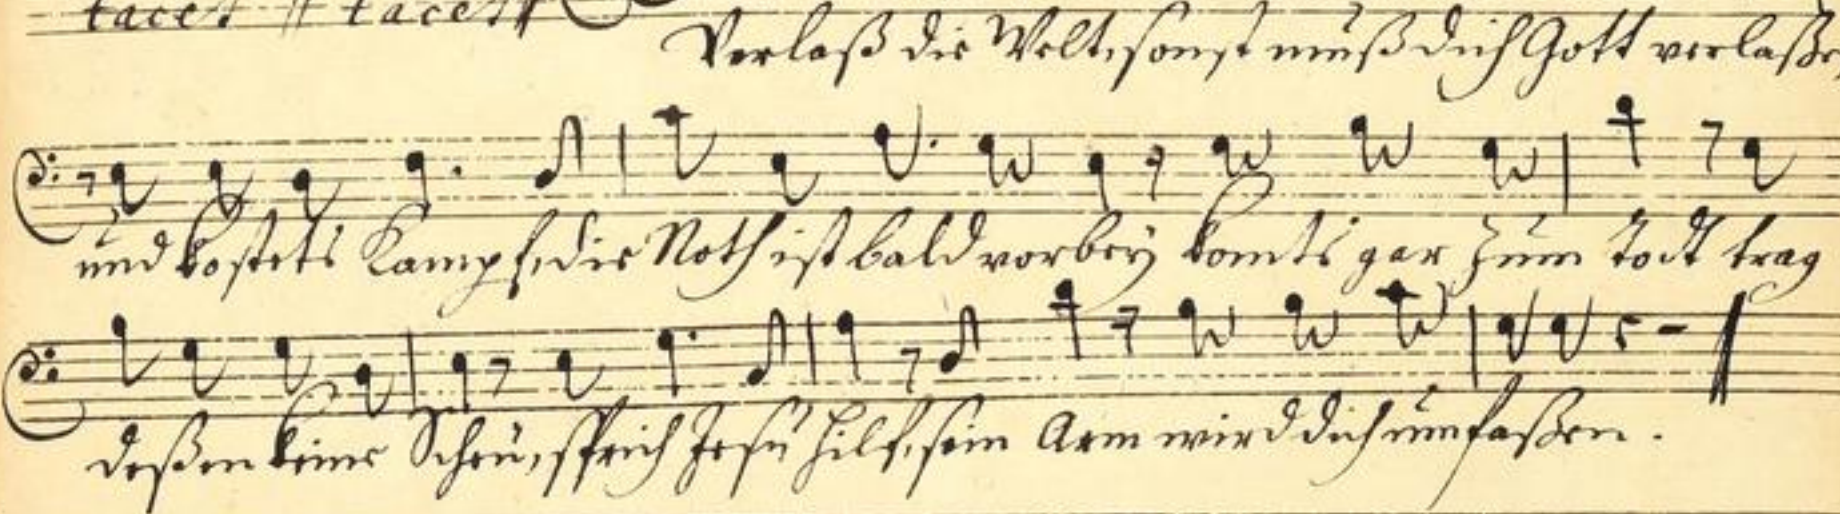 tacet // tacet //
Verlaß die Welt, sonst muß dich Gott verlaße,
und kostets Kampf, die Noth ist bald vorbey komts gar zum Todt trag
deßen keine Scheu, sprich Jesu hilf, sein Arm wird dich umfaßen.